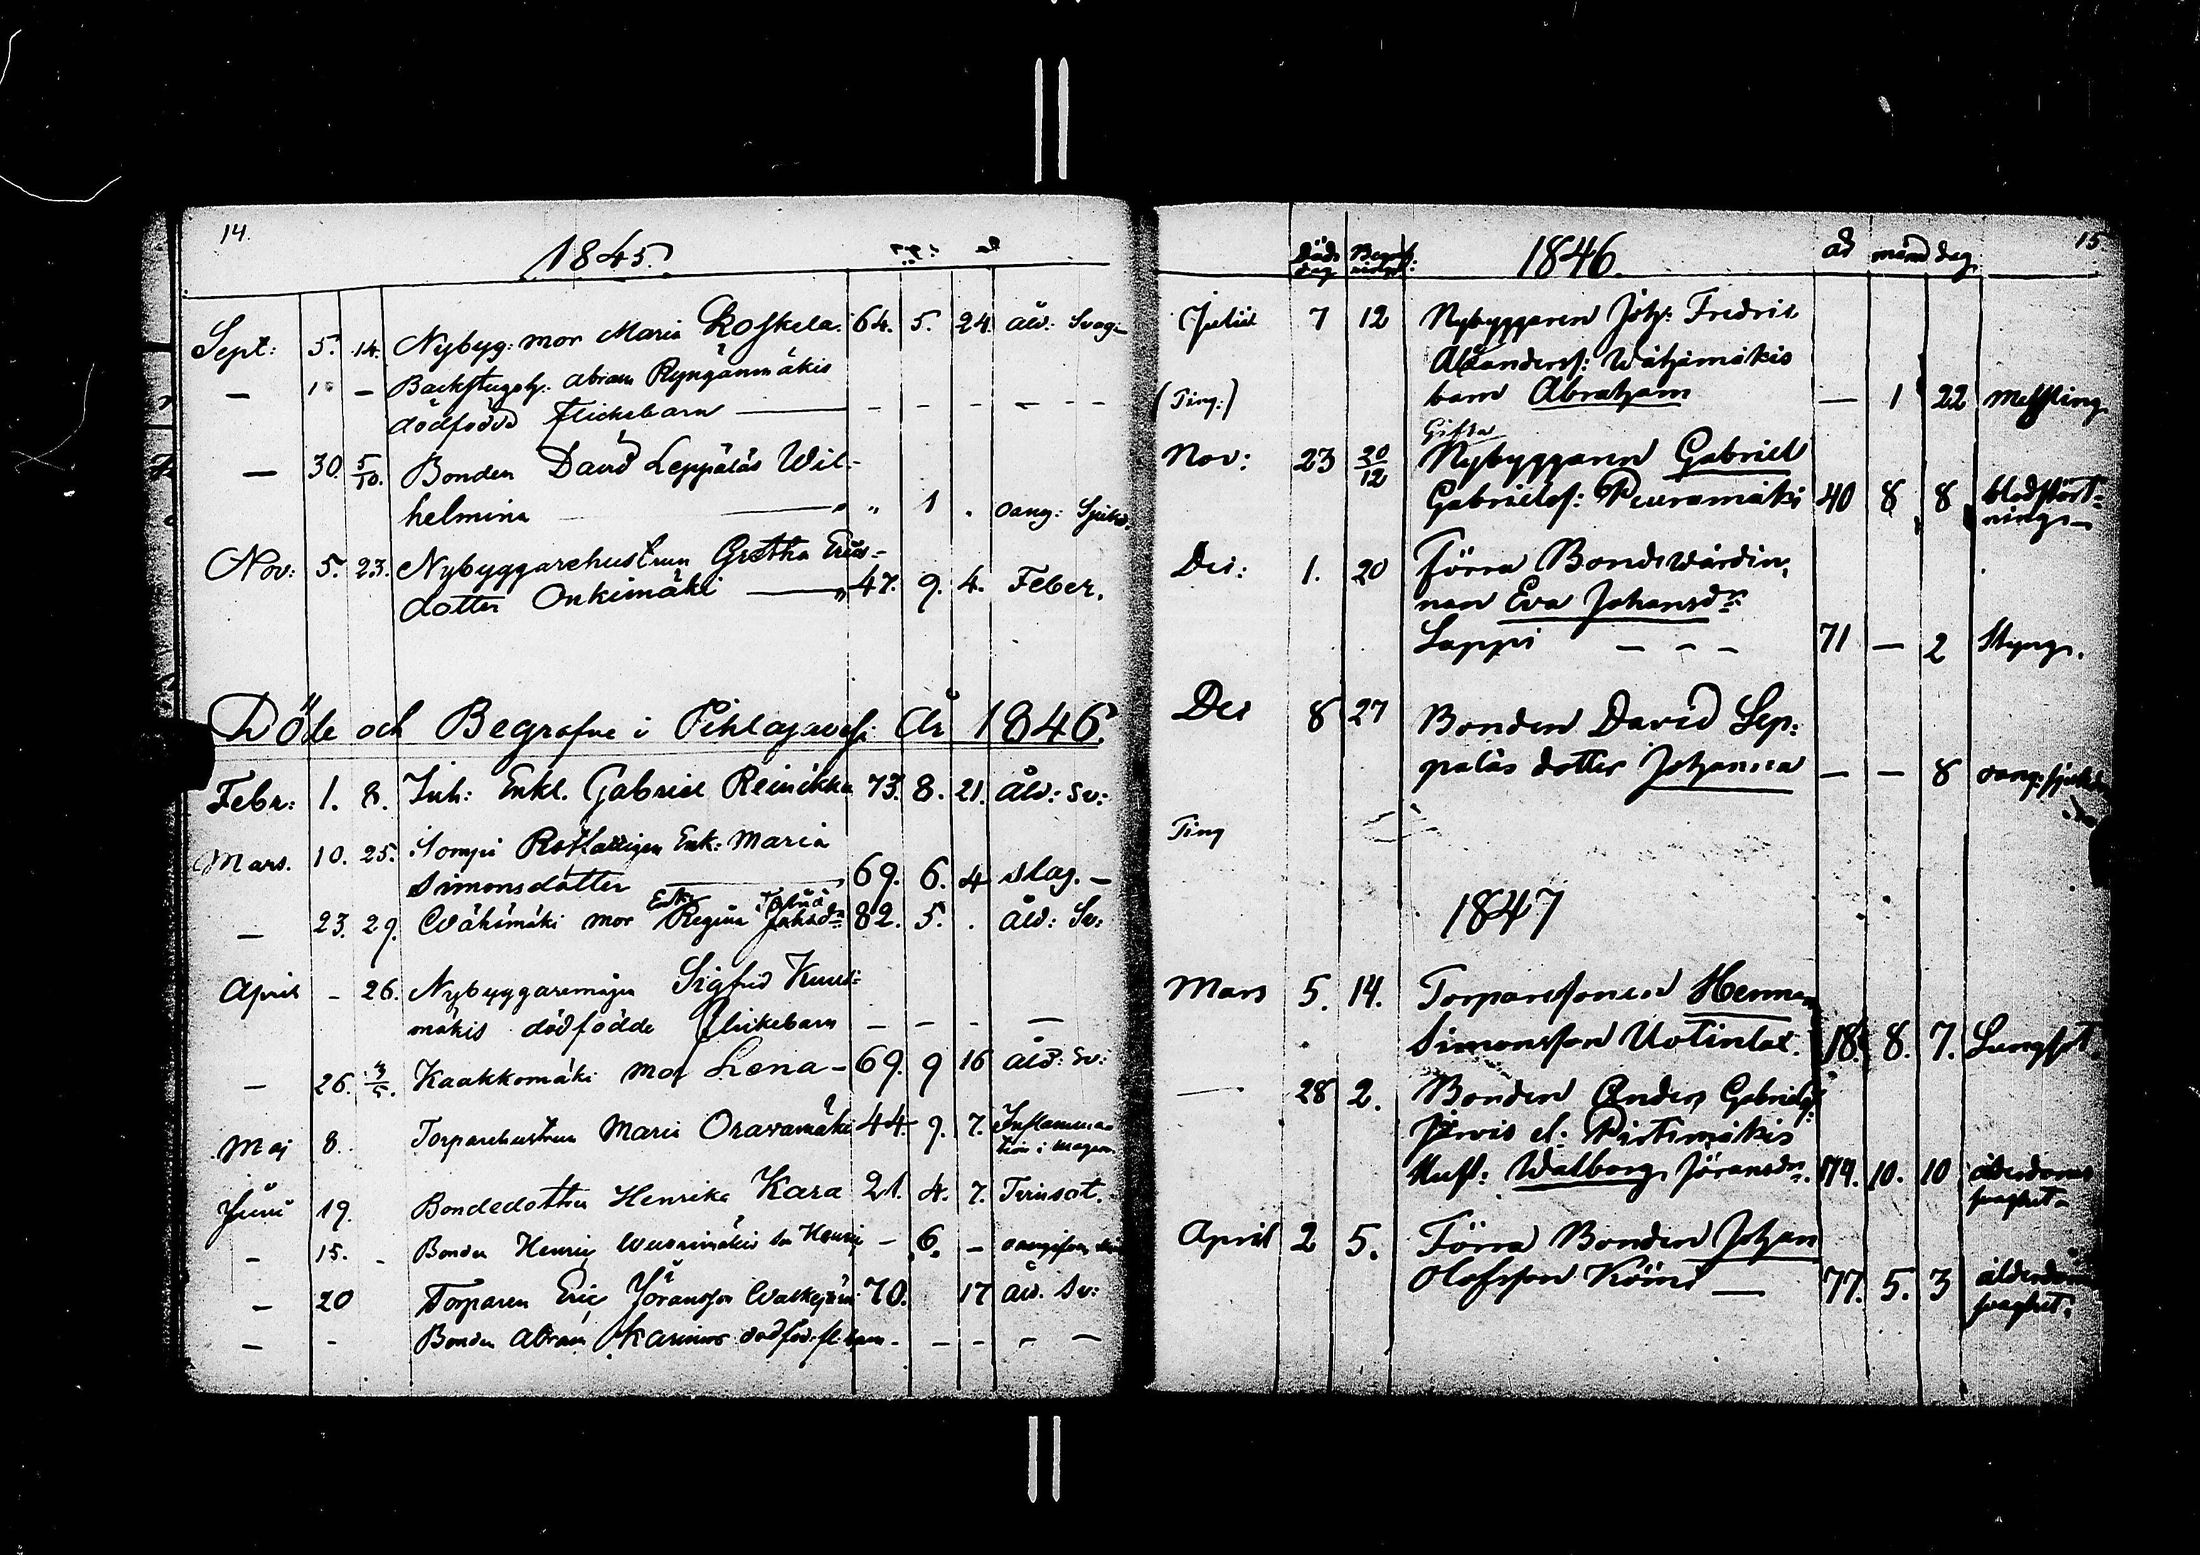 14.
1845.
Sept: 5. 14. Nybyg: mor Maria Koskela. 64. 5. 24. åld: Svag-
— 1 — Backstugoh: Abram Rynganmäkis
dödfödd flickebarn — - - - - -
— 30. 5/10. Bonden David Leppäläs Wil-
helmina — " " 1 . oang: Sjukd.
Nov: 5. 23. Nybyggarehustrun Gretha Erics-
dotter Onkimäki — " 47. 9. 4. Feber.
Döde och Begrafne i Pihlajavesi År 1846.
Febr: 1. 8. Inh: Enkl. Gabriel Reinikka 73. 8. 21. åld: sv:
Mars. 10. 25. Rotfattigen Enk: Maria
Simonsdotter — 69. 6. 4 slag. —
Enk:
— 23. 29. Wähämäki mor Regina Johsdr 82. 5. . åld: Sv:
April - 26. Nybyggaremågen Sigfrid Kuusi-
mäkis dödfödde flickebarn — - - —
— 26. 3/5. Kaakkomäki mor Lena - 69. 9 16 åld: sv:
Maj 8. Torparehustrun Maria Oravamäki 44. 9. 7. Inflamma-
tion i magen
Juni 19. Bondedottren Henrika Kara 21. 4. 7. Tvinsot.
- 15. - Bonden Henric Wuorimäkis son Henric - 6. -
— 20 Torparen Eric Jöransson Walkejärvi 70. 17 åld. sv:
— - Bonden Abram Karimos dödföd. fl. barn - - - - —
15
Döds dag Begrafnings: 1846. år mån dag
Julii 7 12 Nybyggaren Joh: Fredric
Alexanderss: Wähämäkis
(Ting:) barn Abraham — 1 22 Messling
Gifta
Nov: 23 20/12 Nybyggaren Gabriel
Gabrielss: Peuramäki 40 8 8 blodstört-
nings-
Dec: 1. 20 Förra Bondewärdin-
nan Eva Johansdr
Lappi — - - 71 — 2 Styng.
Dec 8 27 Bonden David Lep-
paläs dotter Johanna — — 8 oang: sjukd
Ting
1847
Mars 5. 14. Torparesonen Herman
Simonsson Uotinlax. 18. 8. 7. Lungsot.
— 28 2. Bonden Anders Gabrielss:
Järvis el: Pirtimäkis
Hust: Walborg Jöransdr. 79. 10. 10 ålderdoms
svaghet-
April 2 5. Förra Bonden Johan
Olofsson Köins — 77. 5. 3 ålderdoms
svaghet.